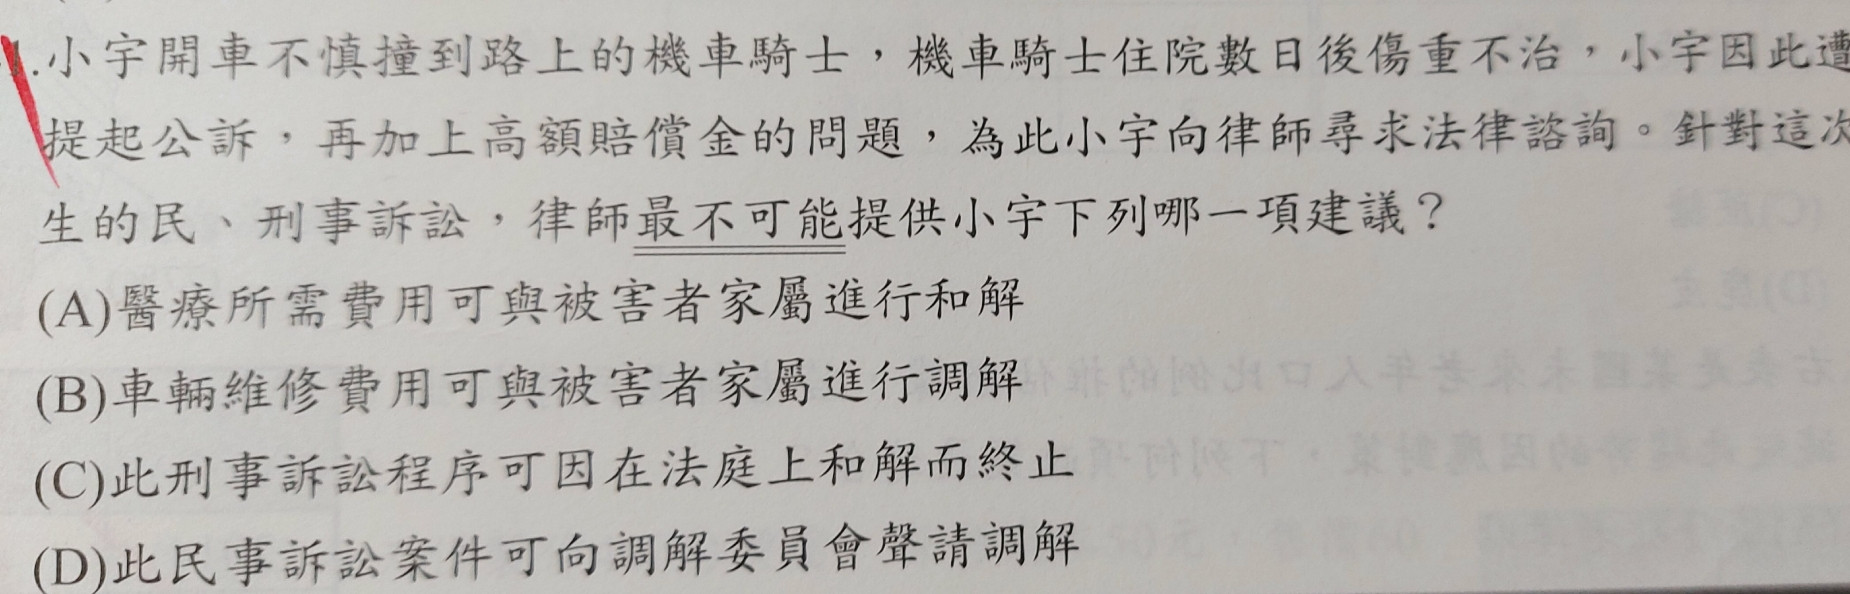 .小宇開車不慎撞到路上的機車騎士，機車騎士住院數日後傷重不治，小宇因此遭
提起公訴，再加上高額賠償金的問題，為此小宇向律師尋求法律諮詢。針對這次
生的民、刑事訴訟，律師最不可能提供小宇下列哪一項建議？
(A)醫療所需費用可與被害者家屬進行和解
(B)車輛維修費用可與被害者家屬進行調解
(C)此刑事訴訟程序可因在法庭上和解而終止
(D)此民事訴訟案件可向調解委員會聲請調解